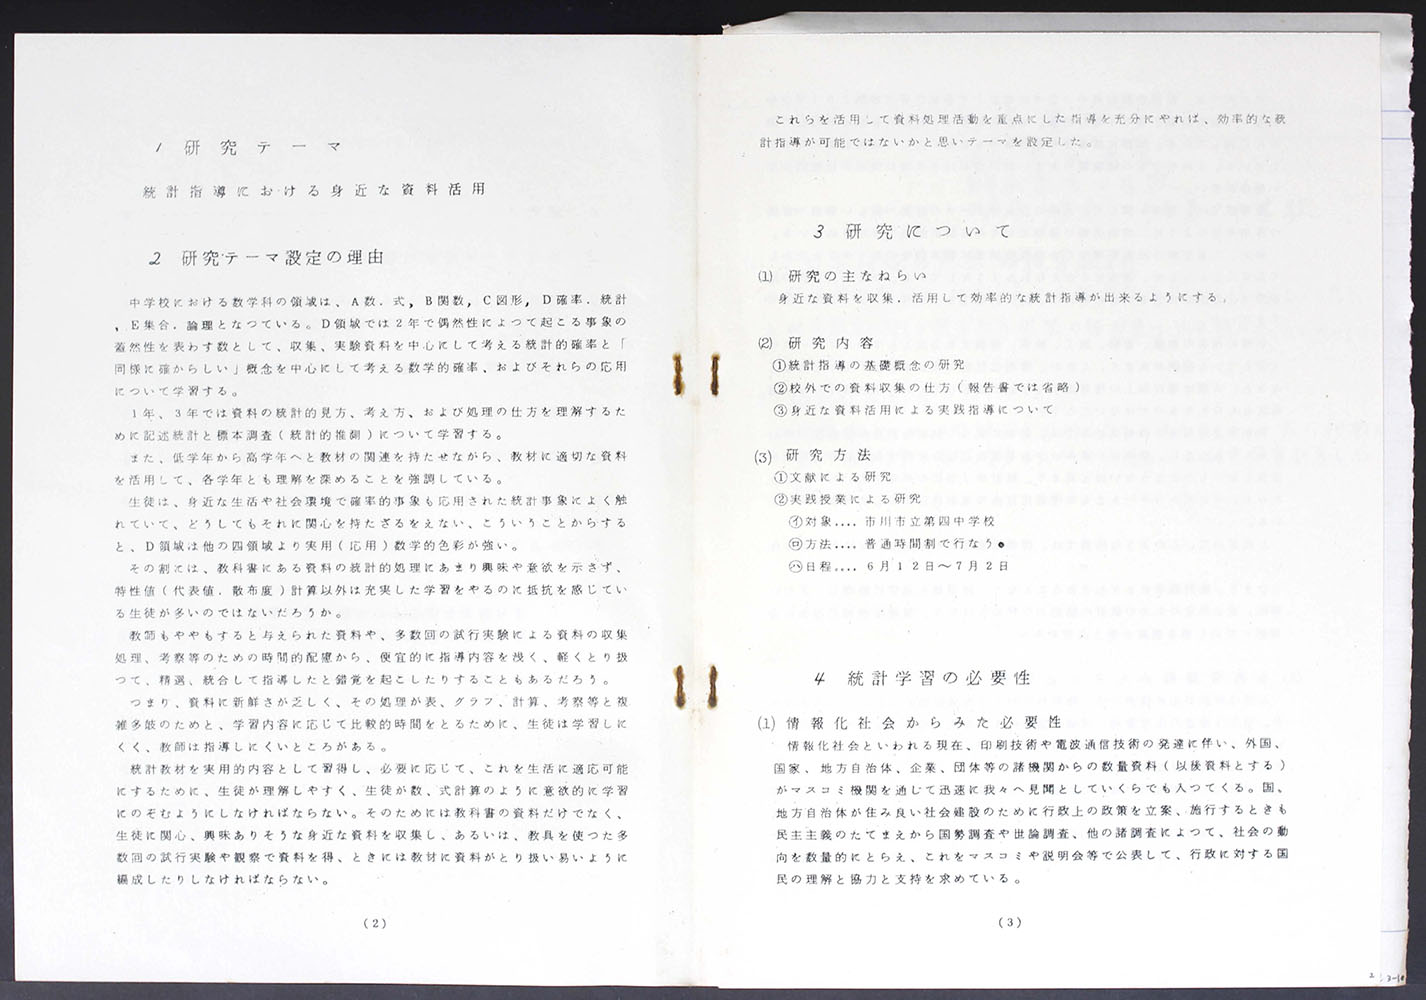 1 研究テーマ
統計指導における身近な資料活用
2 研究テーマ設定の理由
中学校における数学科の領域は、A数．式，B関数，C図形，D確率．統計
，E集合．論理となつている。D領域では2年で偶然性によつて起こる事象の
蓋然性を表わす数として、収集、実験資料を中心にして考える統計的確率と「
同様に確からしい」概念を中心にして考える数学的確率、およびそれらの応用
について学習する。
1年、3年では資料の統計的見方、考え方、および処理の仕方を理解するた
めに記述統計と標本調査（統計的推測）について学習する。
また、低学年から高学年へと教材の関連を持たせながら、教材に適切な資料
を活用して、各学年とも理解を深めることを強調している。
生徒は、身近な生活や社会環境で確率的事象も応用された統計事象によく触
れていて、どうしてもそれに関心を持たざるをえない、こういうことからする
と、D領域は他の四領域より実用（応用）数学的色彩が強い。
その割には、教科書にある資料の統計的処理にあまり興味や意欲を示さず、
特性値（代表値．散布度）計算以外は充実した学習をやるのに抵抗を感じてい
る生徒が多いのではないだろうか。
教師もややもすると与えられた資料や、多数回の試行実験による資料の収集
処理、考察等のための時間的配慮から、便宜的に指導内容を浅く、軽くとり扱
つて、精選、統合して指導したと錯覚を起こしたりすることもあるだろう。
つまり、資料に新鮮さが乏しく、その処理が表、グラフ、計算、考察等と複
雑多岐のためと、学習内容に応じて比較的時間をとるために、生徒は学習しに
くく、教師は指導しにくいところがある。
統計教材を実用的内容として習得し、必要に応じて、これを生活に適応可能
にするために、生徒が理解しやすく、生徒が数、式計算のように意欲的に学習
にのぞむようにしなければならない。そのためには教科書の資料だけでなく、
生徒に関心、興味ありそうな身近な資料を収集し、あるいは、教具を使つた多
数回の試行実験や観察で資料を得、ときには教材に資料がとり扱い易いように
編成したりしなければならない。
（2）
これらを活用して資料処理活動を重点にした指導を充分にやれば、効率的な統
計指導が可能ではないかと思いテーマを設定した。
3 研究について
(1) 研究の主なねらい
身近な資料を収集．活用して効率的な統計指導が出来るようにする。
(2) 研究内容
①統計指導の基礎概念の研究
②校外での資料収集の仕方（報告書では省略）
③身近な資料活用による実践指導について
(3) 研究方法
①文献による研究
②実践授業による研究
㋑対象．．．．市川市立第四中学校
㋺方法．．．．普通時間割で行なう。
㋩日程．．．．6月12日～7月2日
4 統計学習の必要性
(1) 情報化社会からみた必要性
情報化社会といわれる現在、印刷技術や電波通信技術の発達に伴い、外国、
国家、地方自治体、企業、団体等の諸機関からの数量資料（以後資料とする）
がマスコミ機関を通じて迅速に我々へ見聞としていくらでも入つてくる。国、
地方自治体が住み良い社会建設のために行政上の政策を立案、施行するときも
民主主義のたてまえから国勢調査や世論調査、他の諸調査によつて、社会の動
向を数量的にとらえ、これをマスコミや説明会等で公表して、行政に対する国
民の理解と協力と支持を求めている。
（3）